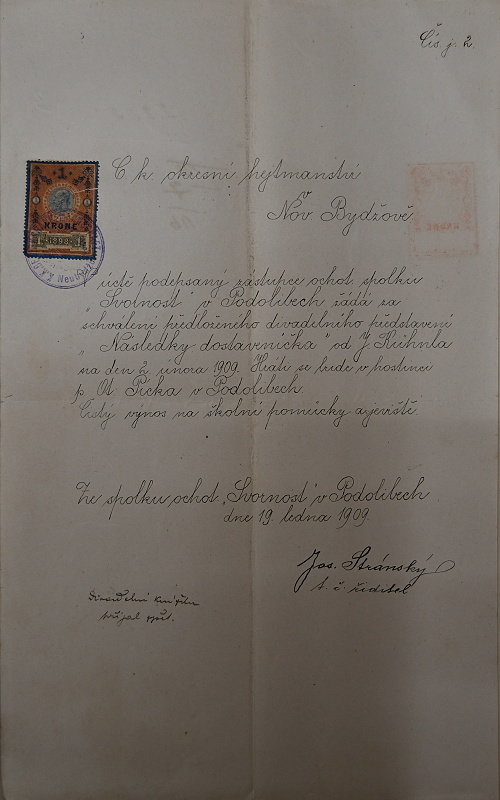 Čís. j. 2.
C. k. okresní hejtmanství
v
Nov. Bydžově.
1
KRONE
1 1898 1
V úctě podepsaný zástupce ochot. spolku
„Svornost" v Podolibech žádá za
schválení předloženého divadelního představení
„Následky dostaveníčka" od J. Kühnla
na den 2. února 1909. Hráti se bude v hostinci
p. Ot. Picka v Podolibech.
Čistý výnos na školní pomůcky a jeviště.
Ze spolku ochot. „Svornost" v Podolibech
dne 19. ledna 1909.
Jos. Stránský
t. č. ředitel
Divadelní knížku
přijal zpět.